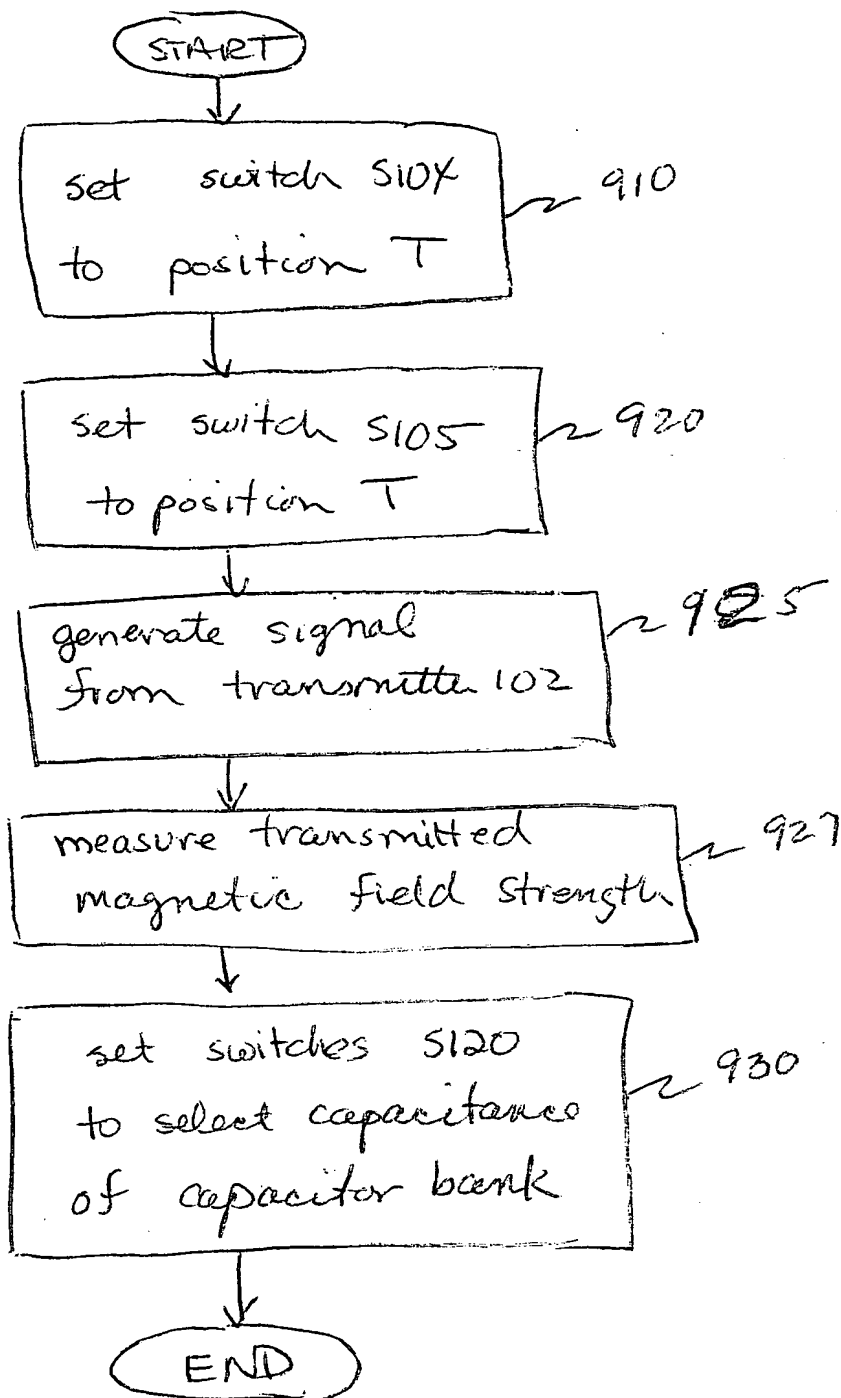 START
set switch S104
to position T
910
set switch S105
to position T
920
generate signal
from transmitter 102
925
measure transmitted
magnetic field strength
927
set switches S120
to select capacitance
of capacitor bank
930
END